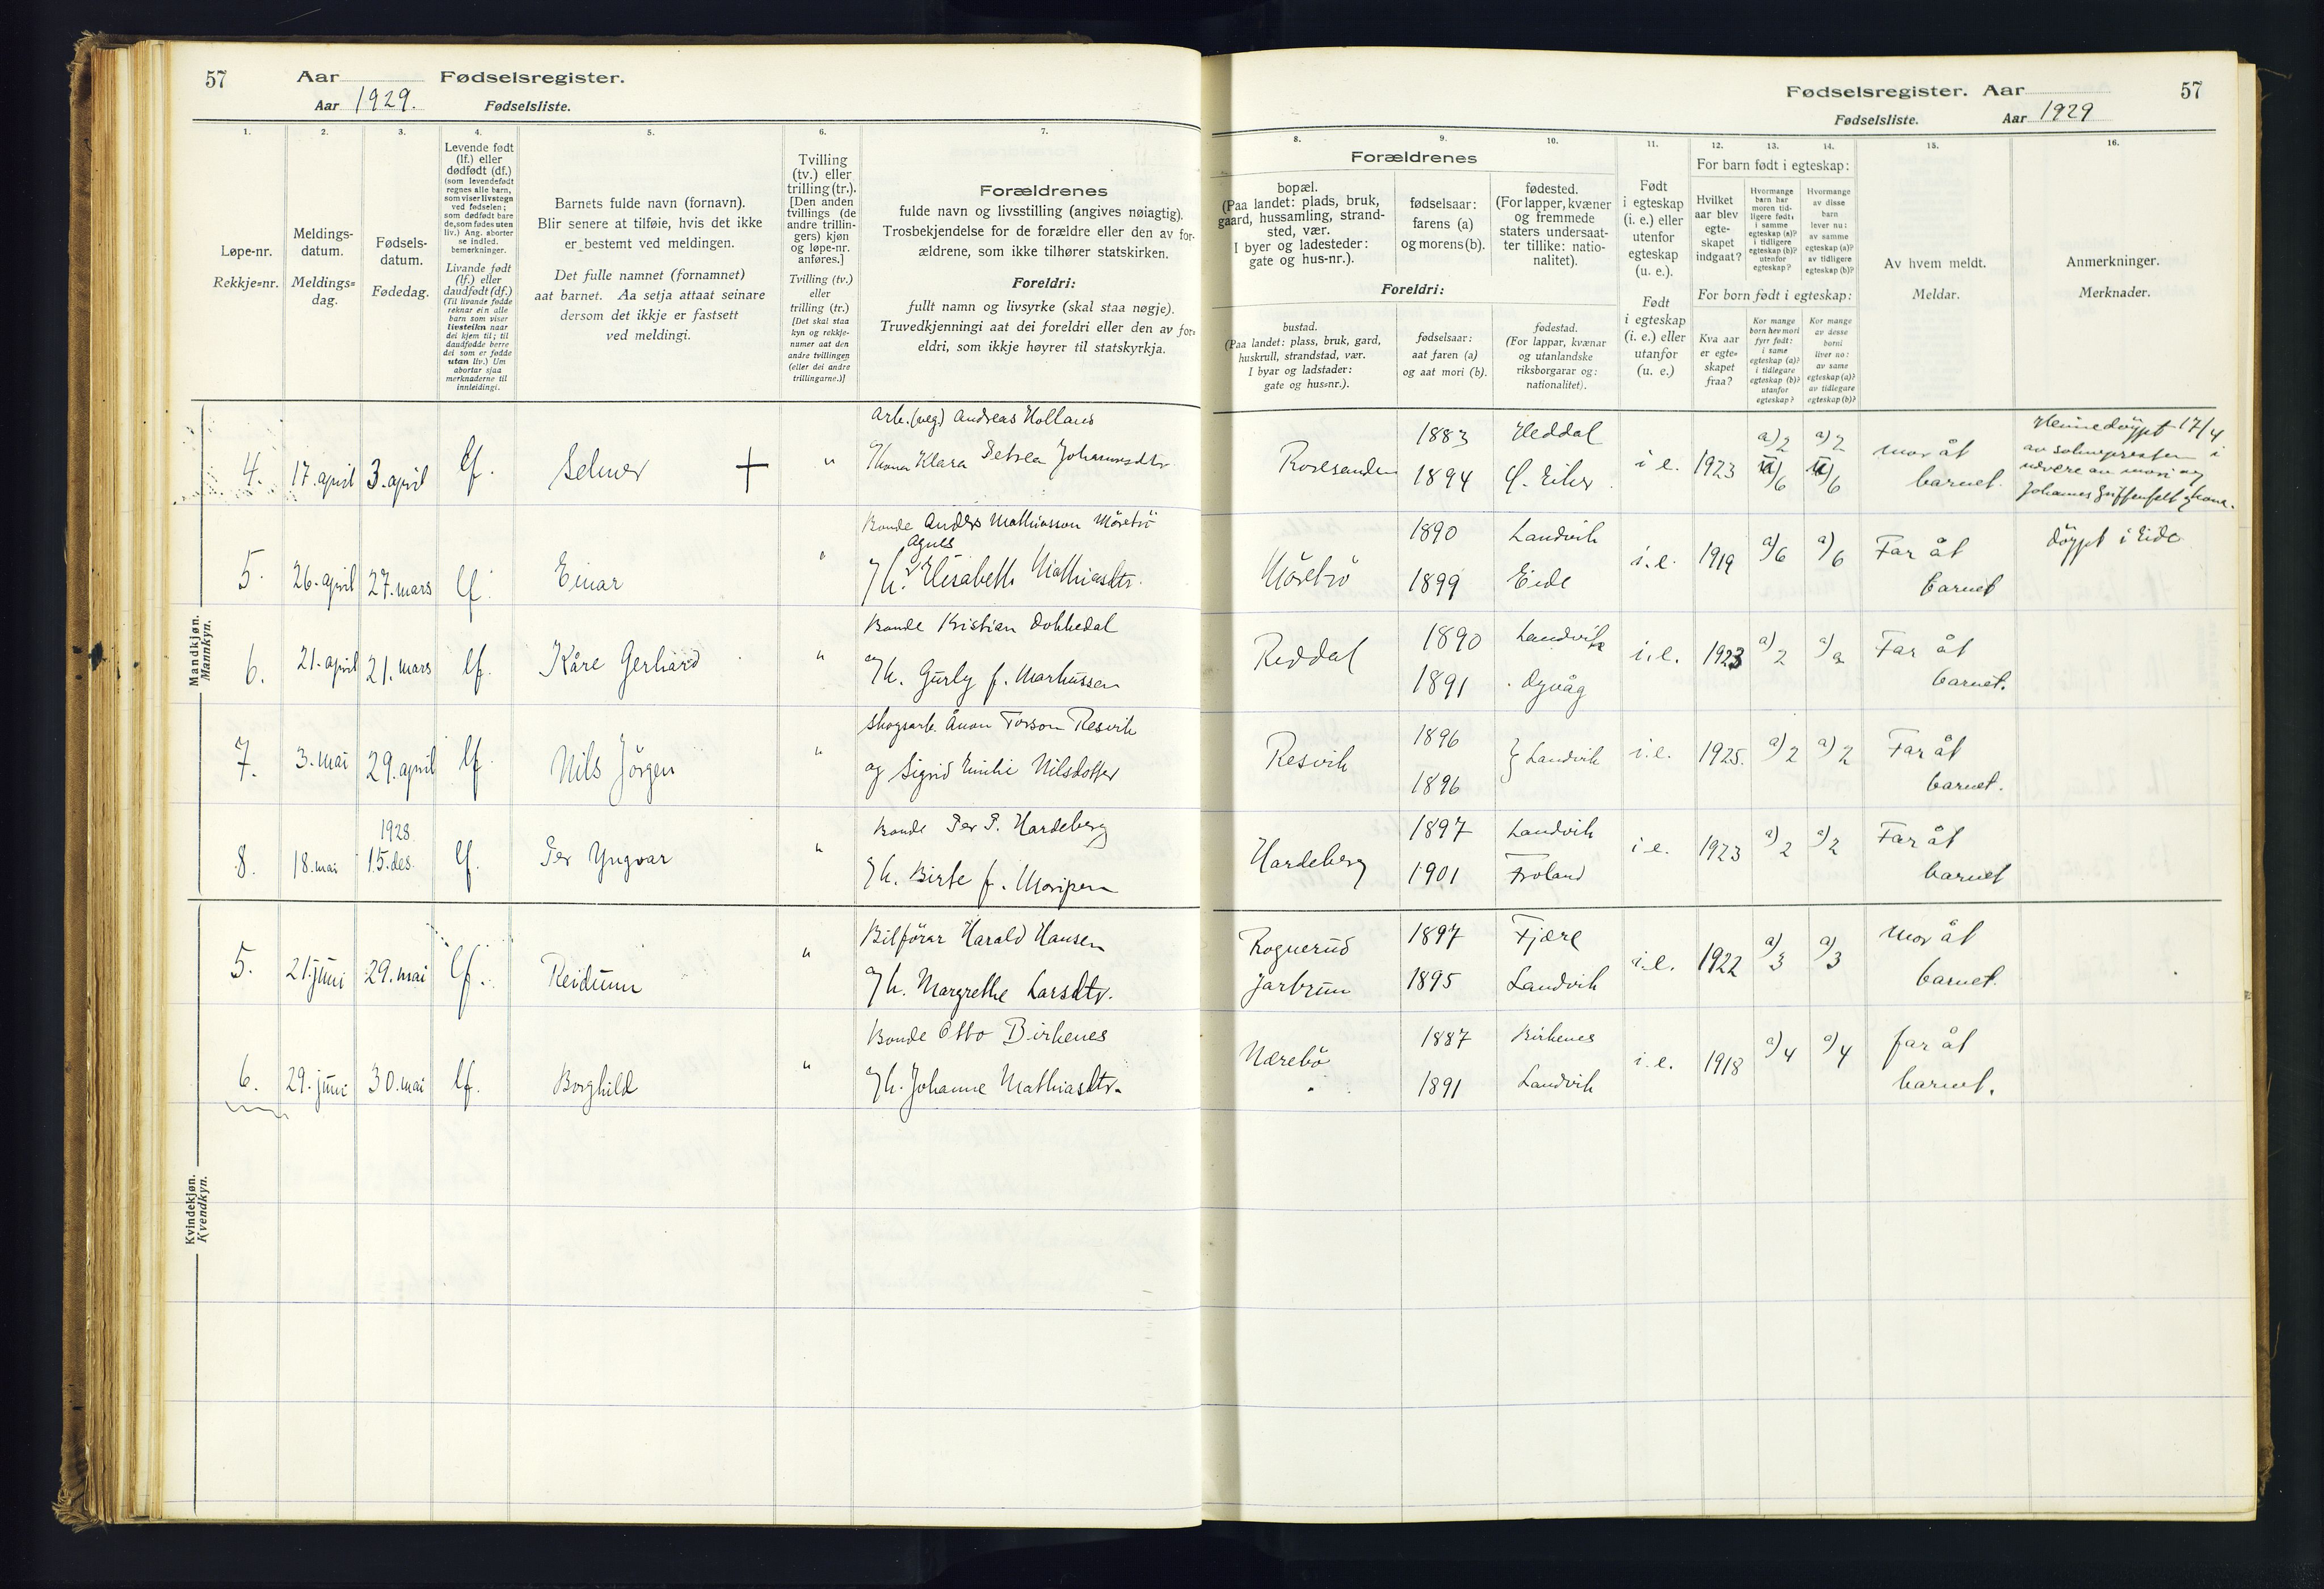 57 Aar Fødselsregister.
Aar 1929. Fødselsliste.
1. 2. 3. 4. 5. 6. 7.
Løpe-nr.
Rekkje-nr.
Meldings-
datum.
Meldings-
dag.
Fødsels-
datum.
Fødedag.
Levende født
(lf.) eller
dødfødt (df.)
(som levendefødt
regnes alle barn,
som viser livstegn
ved fødselen;
som dødfødt bare
de, som fødes uten
liv.) Ang. aborter
se indled.
bemerkninger.
Livande født
(lf.) eller
daudfødt (df.)
(Til livande fødde
reknar ein alle
barn som viser
livsteikn naar
dei kjem til; til
daudfødde berre
dei som er fødde
utan liv.) Um
abortar sjaa
merknaderne til
innleidingi.
Barnets fulde navn (fornavn).
Blir senere at tilføie, hvis det ikke
er bestemt ved meldingen.
Det fulle namnet (fornamnet)
aat barnet. Aa setja attaat seinare
dersom det ikkje er fastsett
ved meldingi.
Tvilling
(tv.) eller
trilling (tr.).
[Den anden
tvillings (de
andre trillin-
gers) kjøn
og løpe-nr.
anføres.]
Tvilling (tv.)
eller
trilling (tr.)
[Det skal staa
kyn og rekkje-
numer aat den
andre tvillingen
(eller dei andre
trillingarne.)]
Forældrenes
fulde navn og livsstilling (angives nøiagtig).
Trosbekjendelse for de forældre eller den av for-
ældrene, som ikke tilhører statskirken.
Foreldri:
fullt namn og livsyrke (skal staa nøgje).
Truvedkjenningi aat dei foreldri eller den av for-
eldri, som ikkje høyrer til statskyrkja.
Mandkjøn.
Mannkyn.
4. 17. april 3. april lf. Selmer + "
Arb. (veg) Andreas Hollans
og kona Klara Petrea Johannesdtr.
5. 26. april 27. mars lf. Einar "
Bonde Anders Mathiasson Møretrø
Agnes
og k. Elisabeth Mathiasdtr.
6. 21. april 21. mars lf. Kåre Gerhard "
Bonde Kristian Dokkedal
og k. Gurly f. Markussen
7. 3. mai 29. april lf. Nils Jörgen "
Skogsarb. Ånon Torson Resvik
og Sigrid Emilie Nilsdotter
8. 18. mai 1928
15. des. lf. Per Yngvar "
Bonde Per P. Hardeberg
og k. Birte f.
Kvindekjøn.
Kvendkyn.
5. 21. juni 29. mai lf. Reidunn "
Bilförar Harald Hansen
og k. Margrethe Larsdtr.
6. 29. juni 30. mai lf. Borghild "
Bonde Otto Birkenes
og k. Johanne Mathiasdtr.
Fødselsregister. Aar 57
Fødselsliste. Aar 1929
8. 9. 10. 11. 12. 13. 14. 15. 16.
Forældrenes
bopæl.
(Paa landet: plads, bruk,
gaard, hussamling, strand-
sted, vær.
I byer og ladesteder:
gate og hus-nr.).
fødselsaar:
farens (a)
og morens (b).
fødested.
(For lapper, kvæner
og fremmede
staters undersaat-
ter tillike: natio-
nalitet).
Foreldri:
bustad.
(Paa landet: plass, bruk, gard,
huskrull, strandstad, vær.
I byar og ladstader:
gate og hus-nr.).
fødselsaar:
aat faren (a)
og aat mori (b).
fødestad.
(For lappar, kvænar
og utanlandske
riksborgarar og:
nationalitet).
Født
i egteskap
(i. e.) eller
utenfor
egteskap
(u. e.).
Født
i egteskap
(i. e.) eller
utanfor
egteskap
(u. e.)
For barn født i egteskap:
Hvilket
aar blev
egte-
skapet
indgaat?
Hvormange
barn har
moren tid-
ligere født:
i samme
egteskap (a)?
i tidligere
egteskap (b)?
utenfor
egteskap?
Hvormange
av disse
barn
lever nu:
av samme
egteskap (a)?
av tidligere
egteskap (b)?
For born født i egteskap:
Kva aar
er egte-
skapet
fraa?
Kor mange
born hev mori
fyrr født:
i same
egteskap (a)?
i tidlegare
egteskap (b)?
utanfor
egteskap?
Kor mange
av desse
borni
liver no:
av same
egteskap (a)?
av tidlegare
egteskap (b)?
Av hvem meldt.
Meldar.
Anmerkninger.
Merknader.
Roresanden 1883 Heddal
1894 Ø. Eiker i. e. 1923 a) 2 a) 2
6 6 mor åt
barnet.
Heimedöypt 17/4
av soknepresten i
nærvære av mori og
Johannes Griffenfelt og kona.
Møretrø 1890 Landvik
1899 Eide i. e. 1919 a) 6 a) 6 Far åt
barnet
döypt i Eide
Reddal 1890 Landvik
1891 Dypvåg i. e. 1923 a) 2 a) 2 Far åt
barnet.
Resvik 1896
1896 } Landvik i. e. 1925. a) 2 a) 2 Far åt
barnet.
Hardeberg 1897 Landvik
1901 Froland i. e. 1923 a) 2 a) 2 Far åt
barnet
Rognerud
Jarbrun 1897 Fjære
1895 Landvik i. e. 1922 a) 3 a) 3 mor åt
barnet.
Nærebø 1887 Birkenes
1891 Landvik i. e. 1918 a) 4 a) 4 far åt
barnet.